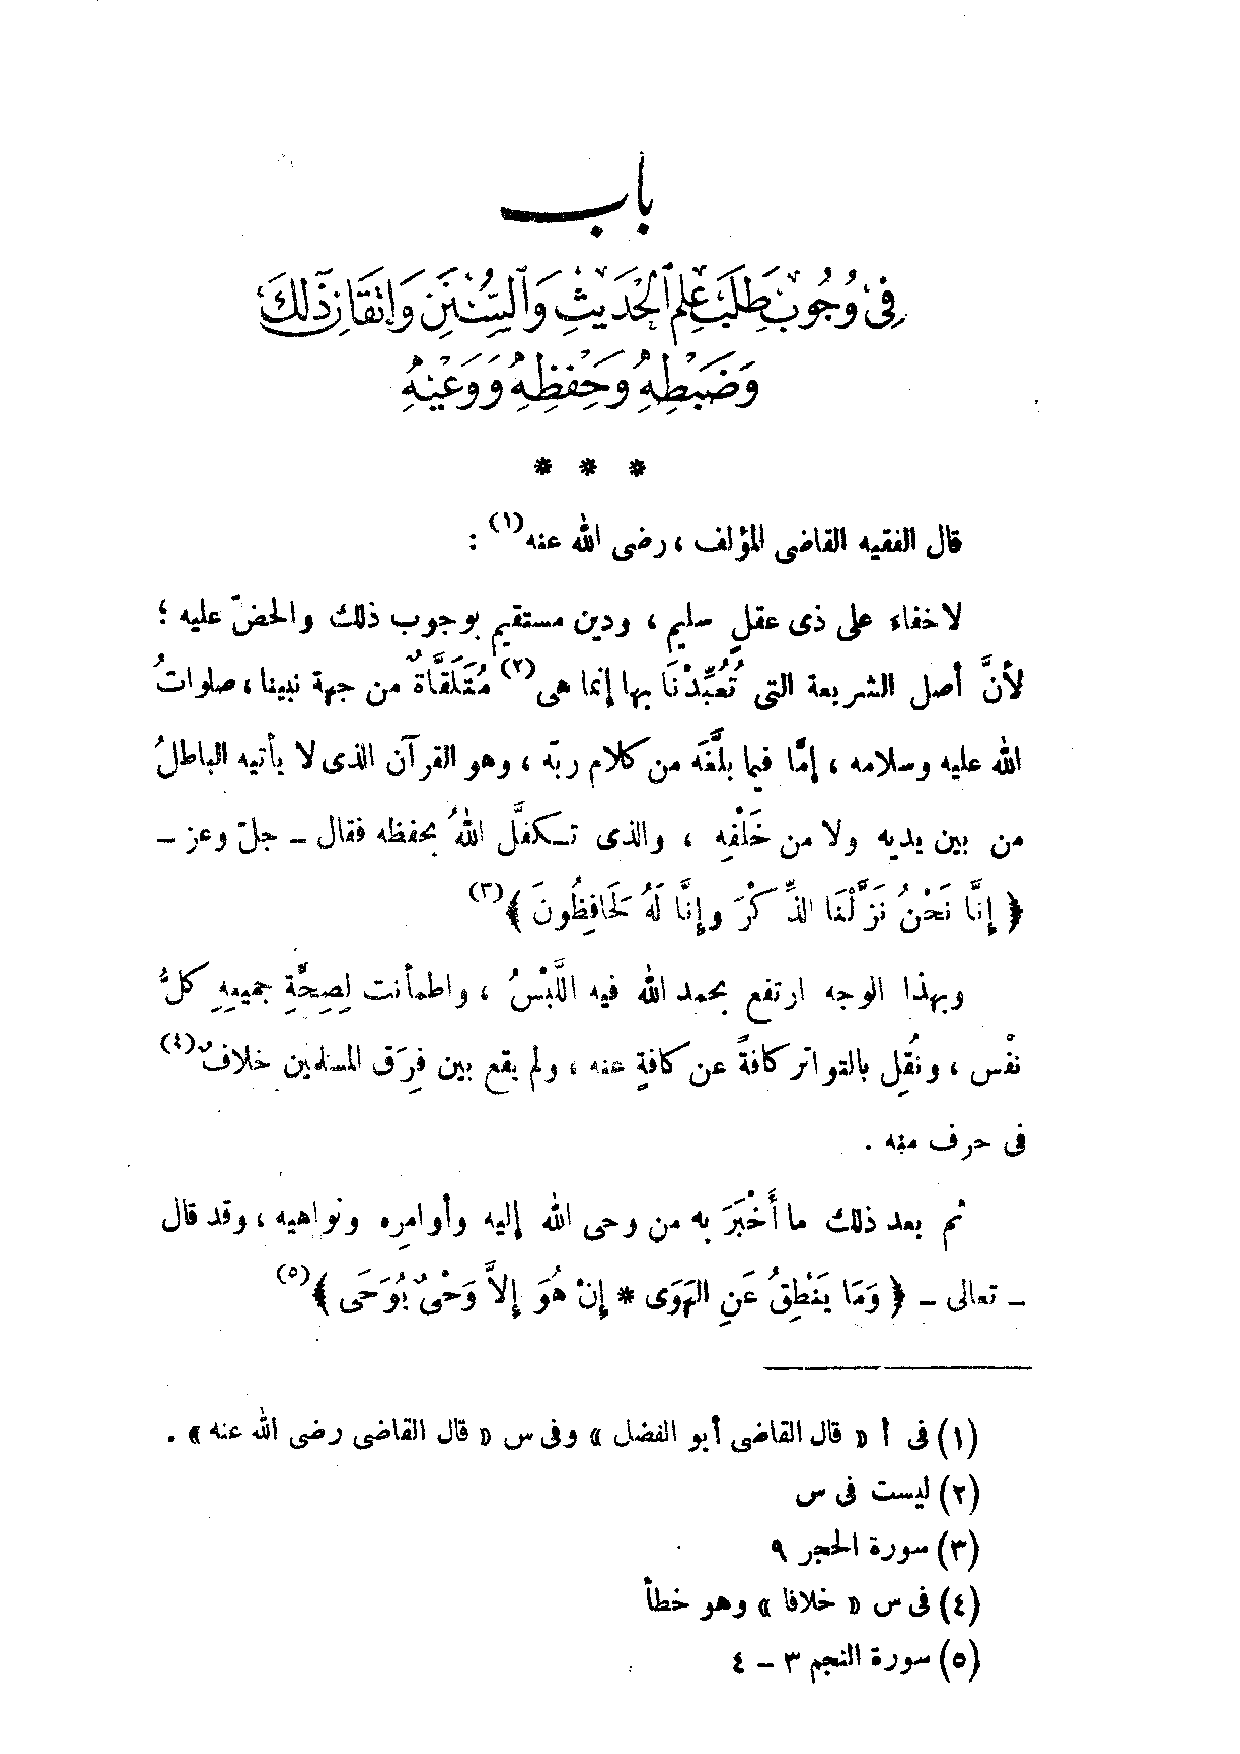 باب
فِى وُجُوبِ طَلَبِ عِلْمِ ٱلْحَدِيثِ وَٱلسُّنَنِ وَإِتْقَانِ ذَٰلِكَ
وَضَبْطِهِ وَحِفْظِهِ وَوَعْيِهِ
* * *
قال الفقيه القاضى المؤلف ، رضى الله عنه(١) :
لا خفاء على ذى عقلٍ سليم ، ودين مستقيم بوجوب ذلك والحضّ عليه ؛
لأنَّ أصل الشريعة التى تُعُبِّدْنَا بها إنما هى(٢) مُتَلَقَّاةٌ من جهة نبينا ، صلواتُ
الله عليه وسلامه ، إمَّا فيما بلَّغَه من كلام ربّه ، وهو القرآن الذى لا يأتيه الباطلُ
من بين يديه ولا من خَلْفِه ، والذى تـكفَّل اللهُ بحفظه فقال ـ جلّ وعز ـ
﴿ إِنَّا نَحْنُ نَزَّلْنَا الذِّكْرَ وإِنَّا لَهُ لَحَافِظُونَ ﴾(٣)
وبهذا الوجه ارتفع بحمد الله فيه اللَّبْسُ ، واطمأنت لِصِحَّةِ جميعِهِ كلُّ
نفْس ، ونُقِل بالتواتر كافةً عن كافةٍ عنه ، ولم يقع بين فِرَق المسلمين خلافٌ(٤)
فى حرف منه .
ثم بعد ذلك ما أَخْبَرَ به من وحى الله إليه وأوامرِه ونواهيه ، وقد قال
ـ تعالى ـ ﴿ وَمَا يَنْطِقُ عَنِ الهَوَى * إِنْ هُوَ إِلاَّ وَحْىٌ يُوحَى ﴾(٥)
(١) فى أ « قال القاضى أبو الفضل » وفى س « قال القاضى رضى الله عنه » .
(٢) ليست فى س
(٣) سورة الحجر ٩
(٤) فى س « خلافا » وهو خطأ
(٥) سورة النجم ٣ – ٤